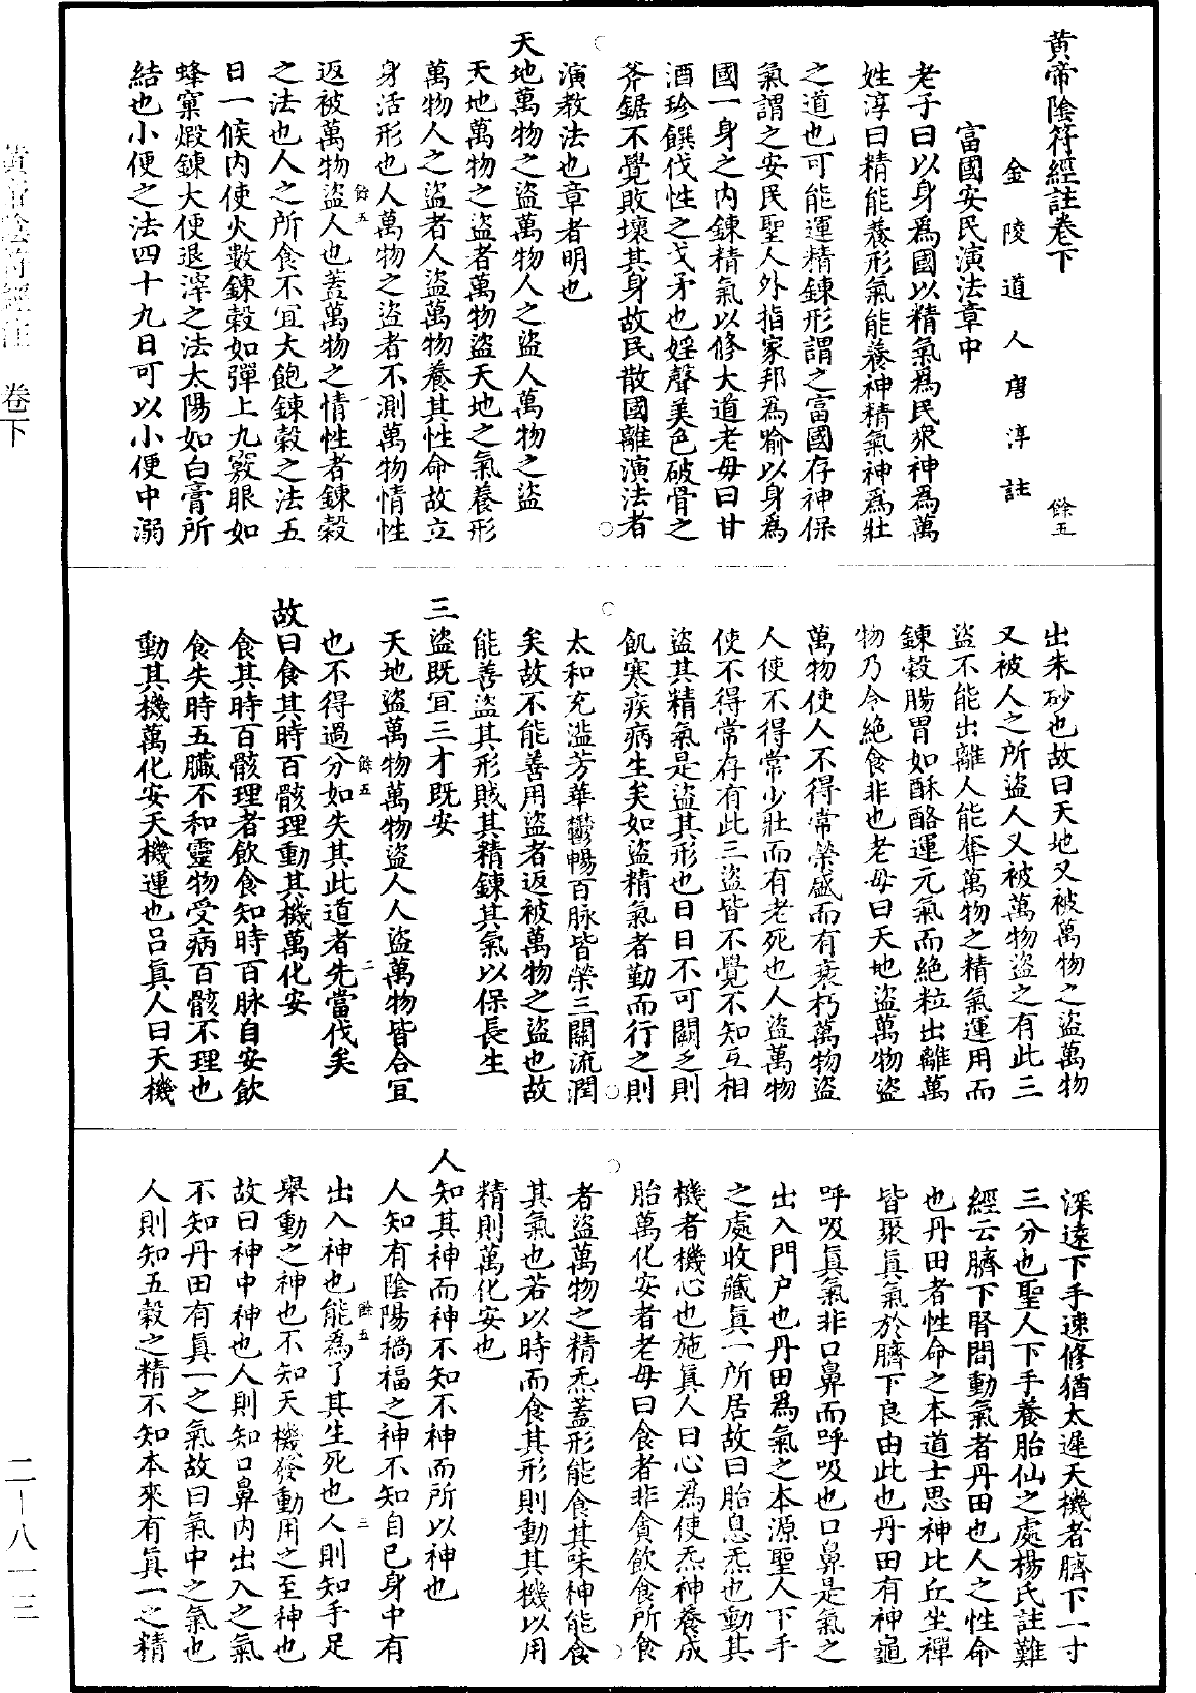 黄帝陰符經註卷下 餘五
金陵道人唐淳註
富國安民演法章中
老子曰以身爲國以精氣爲民衆神爲萬
姓淳曰精能養形氣能養神精氣神爲壯
之道也可能運精鍊形謂之富國存神保
氣謂之安民聖人外指家邦爲喻以身爲
國一身之内鍊精氣以修大道老母曰甘
酒珍饌伐性之戈矛也婬聲美色破骨之
斧鋸不覺敗壞其身故民散國離演法者
演教法也章者明也
天地萬物之盜萬物人之盜人萬物之盜
天地萬物之盜者萬物盜天地之氣養形
萬物人之盜者人盜萬物養其性命故立
身活形也人萬物之盜者不測萬物情性
返被萬物盜人也蓋萬物之情性者鍊穀
餘五 一
之法也人之所食不宜大飽鍊穀之法五
日一候内使火數鍊穀如彈上九竅眼如
蜂窠煅鍊大便退滓之法太陽如白膏所
結也小便之法四十九日可以小便中溺
出朱砂也故曰天地又被萬物之盜萬物
又被人之所盜人又被萬物盜之有此三
盜不能出離人能奪萬物之精氣運用而
鍊穀腸胃如酥酪運元氣而絶粒出離萬
物乃令絶食非也老母曰天地盜萬物盜
萬物使人不得常榮盛而有衰朽萬物盜
人使不得常少壯而有老死也人盜萬物
使不得常存有此三盜皆不覺不知互相
盜其精氣是盜其形也日日不可闕乏則
飢寒疾病生矣如盜精氣者勤而行之則
太和充溢芳華鬱暢百脉皆榮三關流潤
矣故不能善用盜者返被萬物之盜也故
能善盜其形賊其精鍊其氣以保長生
三盜既宜三才既安
天地盜萬物萬物盜人人盜萬物皆合宜
也不得過分如失其此道者先當伐矣
餘五 二
故曰食其時百骸理動其機萬化安
食其時百骸理者飲食知時百脉自安飲
食失時五臟不和靈物受病百骸不理也
動其機萬化安天機運也吕眞人曰天機
深遠下手速修猶太遲天機者臍下一寸
三分也聖人下手養胎仙之處楊氏註難
經云臍下腎間動氣者丹田也人之性命
也丹田者性命之本道士思神比丘坐禪
皆聚眞氣於臍下良由此也丹田有神龜
呼吸眞氣非口鼻而呼吸也口鼻是氣之
出入門户也丹田爲氣之本源聖人下手
之處收藏眞一所居故曰胎息炁也動其
機者機心也施眞人曰心爲使炁神養成
胎萬化安者老母曰食者非貪飲食所食
者盜萬物之精炁蓋形能食其味神能食
其氣也若以時而食其形則動其機以用
精則萬化安也
人知其神而神不知不神而所以神也
人知有陰陽禍福之神不知自己身中有
出入神也能爲了其生死也人則知手足
餘五 三
舉動之神也不知天機發動用之至神也
故曰神中神也人則知口鼻内出入之氣
不知丹田有眞一之氣故曰氣中之氣也
人則知五穀之精不知本來有眞一之精
黃帝陰符經註 卷下
二—八一三